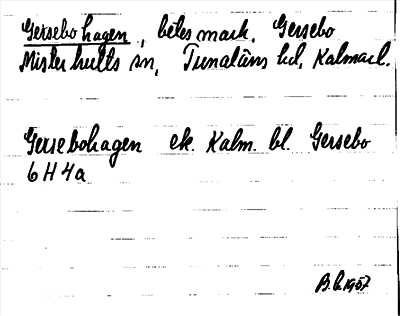 Gersebohagen, betesmark. Gersebo
Misterhults sn, Tunaläns hd, Kalmarl.
Gersebohagen ek. Kalm. bl. Gersebo
6 H 4 a
1957